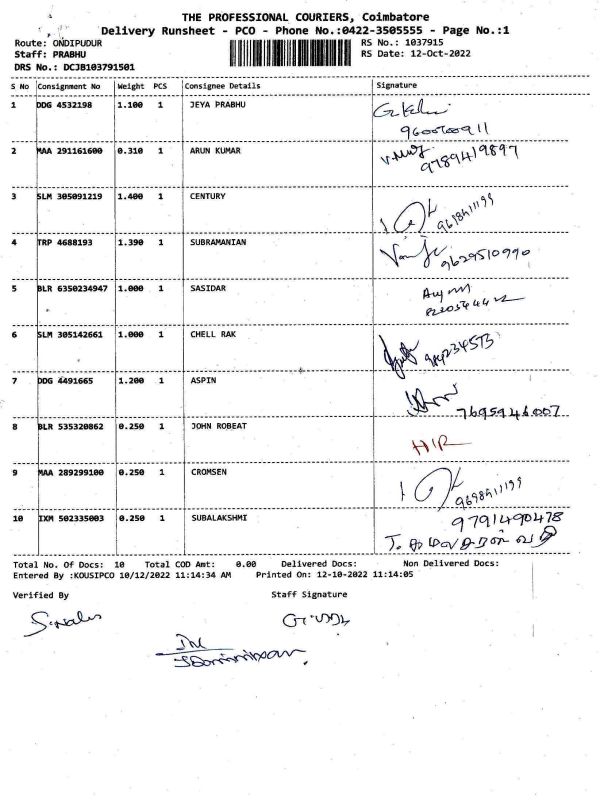 THE PROFESSIONAL COURIERS, Coimbatore
Delivery Runsheet - PCO - Phone No.:0422-3505555 - Page No.:1
Route: ONDIPUDUR RS No.: 1037915
Staff: PRABHU RS Date: 12-Oct-2022
DRS No.: DCJB103791501
S No Consignment No Weight PCS Consignee Details Signature
1 DDG 4532198 1.100 1 JEYA PRABHU
9600700911
2 MAA 291161600 0.310 1 ARUN KUMAR
9789419897
3 SLM 305091219 1.400 1 CENTURY
9698411199
4 TRP 4688193 1.390 1 SUBRAMANIAN
9629510990
5 BLR 6350234947 1.000 1 SASIDAR
6 SLM 305142661 1.000 1 CHELL RAK
7 DDG 4491665 1.200 1 ASPIN
7695946007
8 BLR 535320862 0.250 1 JOHN ROBEAT
HIR
9 MAA 289299100 0.250 1 CROMSEN
9698411199
10 IXM 502335003 0.250 1 SUBALAKSHMI
9791490478
Total No. Of Docs: 10 Total COD Amt: 0.00 Delivered Docs: Non Delivered Docs:
Entered By :KOUSIPCO 10/12/2022 11:14:34 AM Printed On: 12-10-2022 11:14:05
Verified By Staff Signature